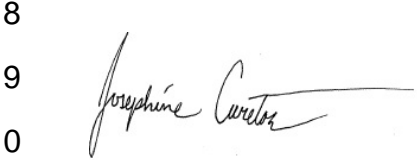 8
9
Josephine Cureton
0